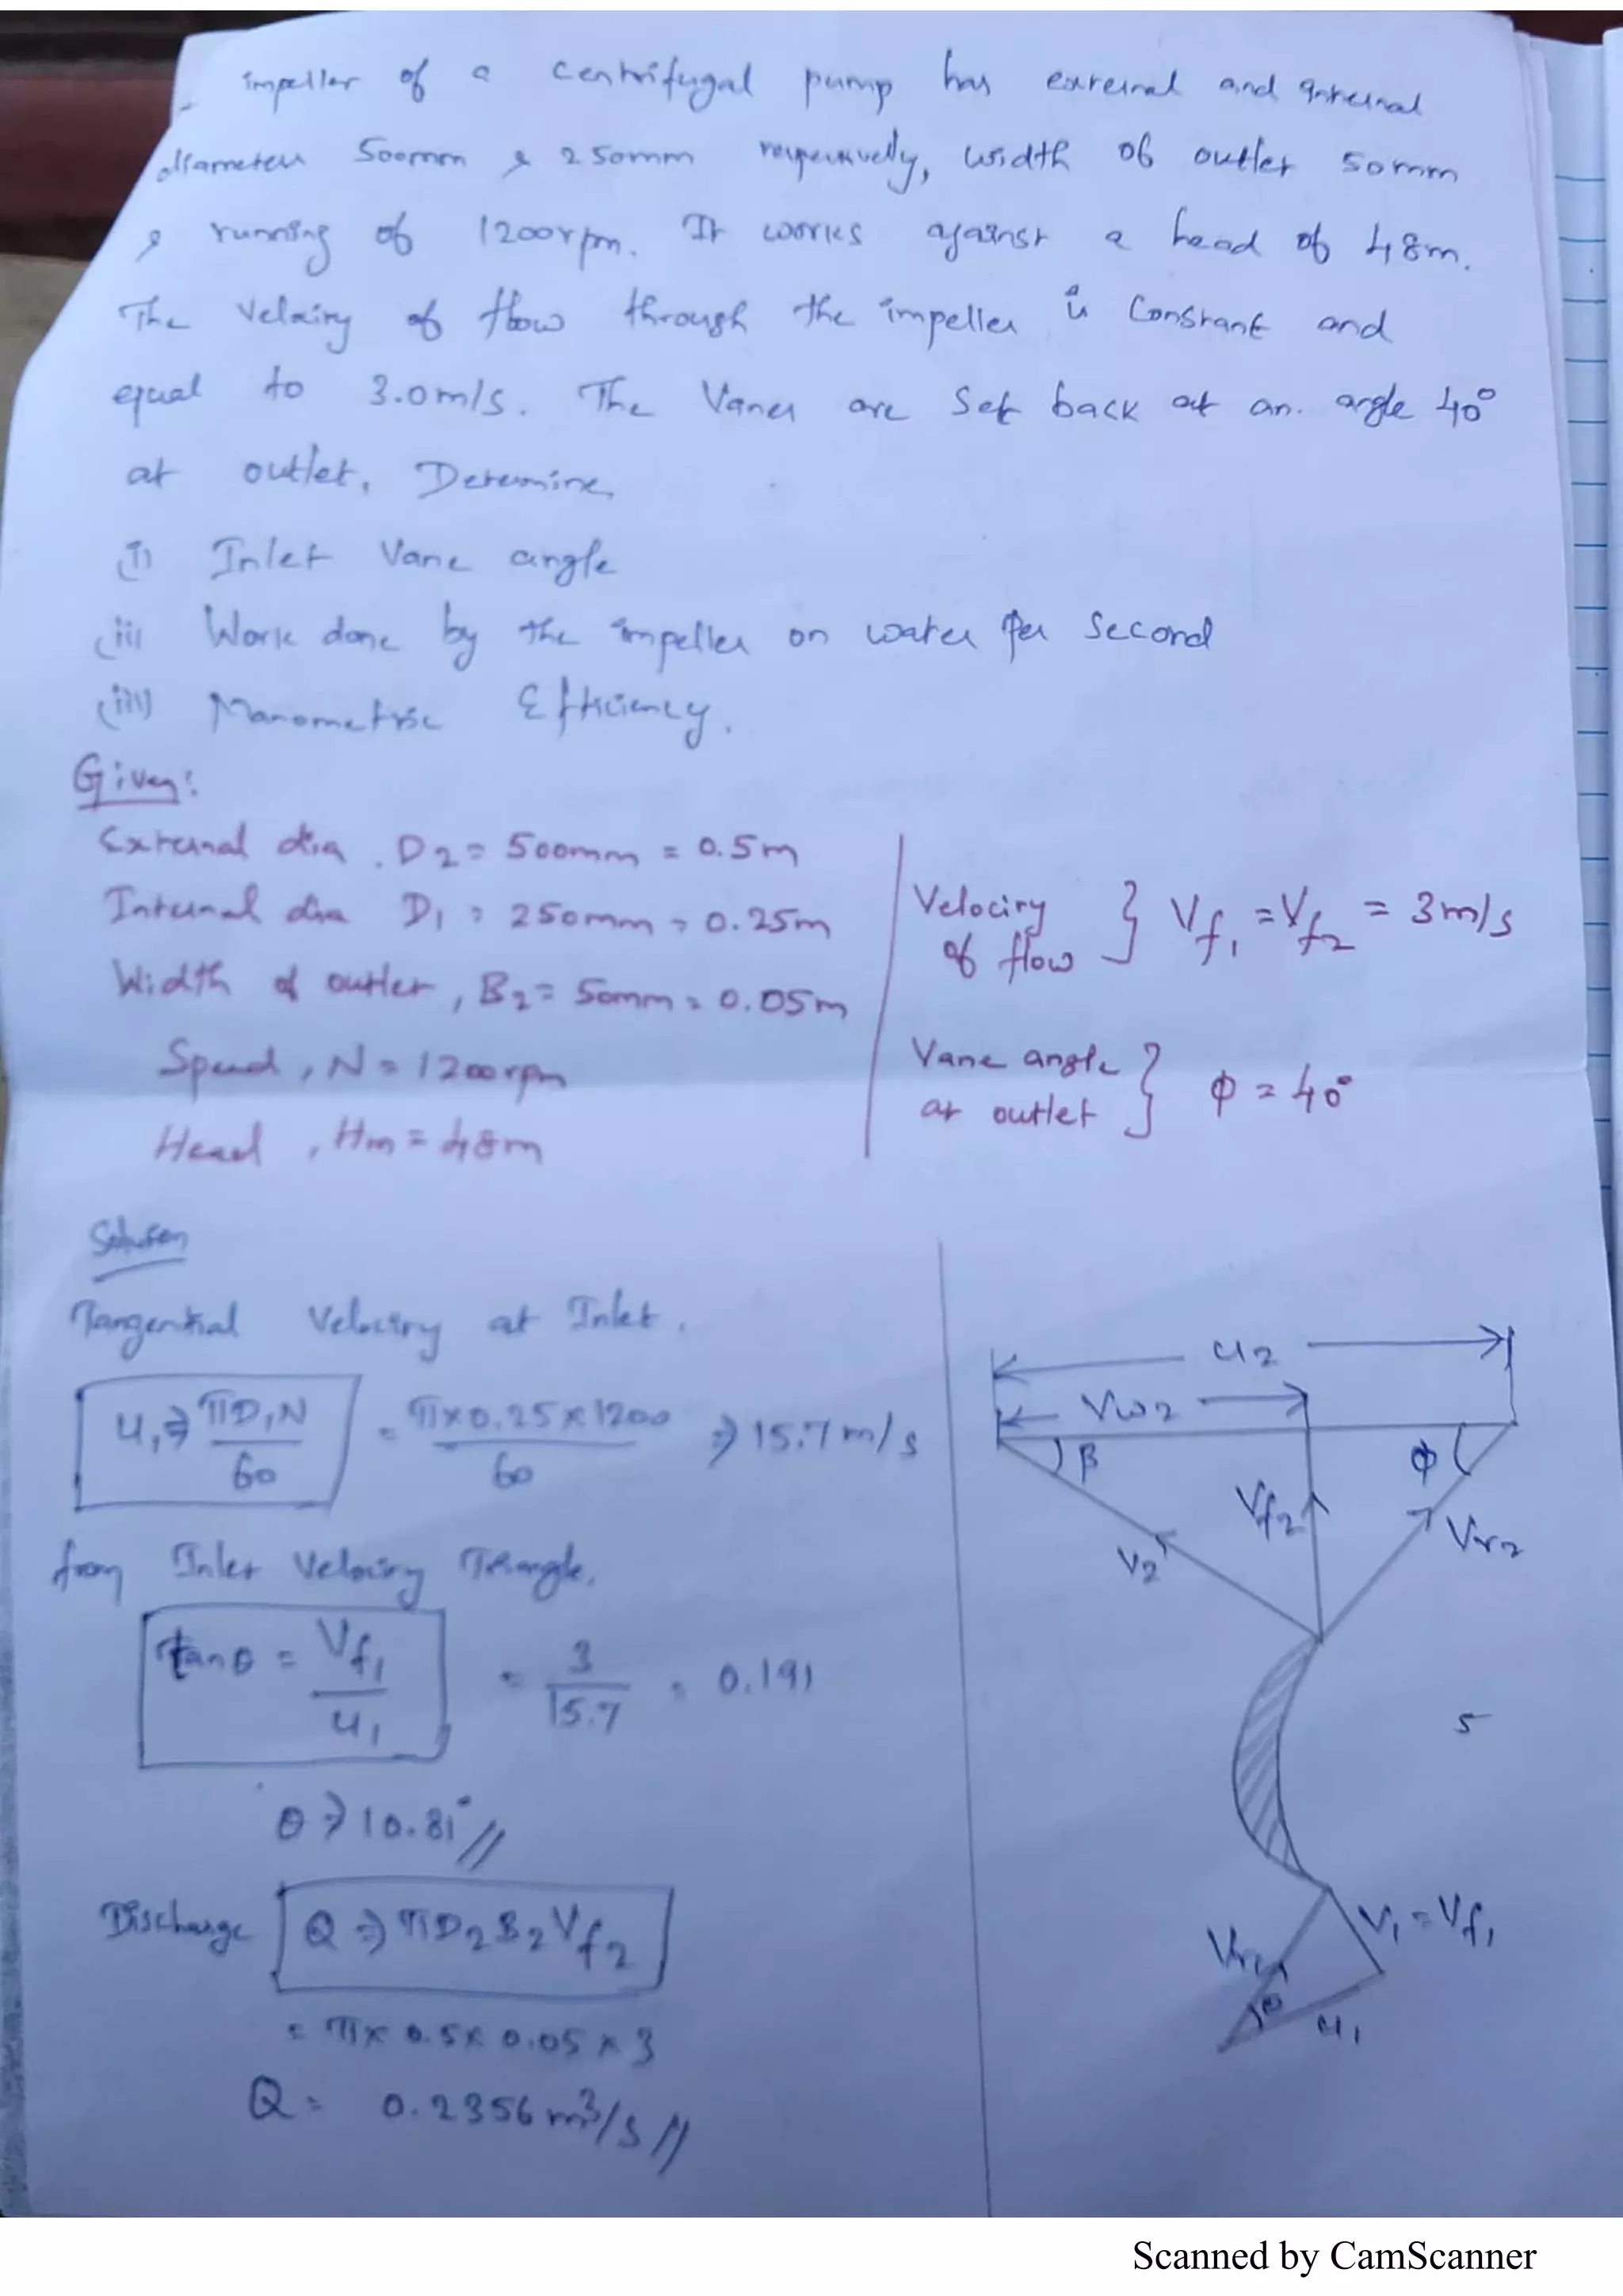 impeller of a centrifugal pump has external and internal
diameters 500mm & 250mm respectively, width of outlet 50mm
& running of 1200rpm. It works against a head of 48m.
The velocity of flow through the impeller is constant and
equal to 3.0m/s. The Vanes are set back at an angle 40°
at outlet. Determine,
(i) Inlet Vane angle
(ii) Work done by the impeller on water per second
(iii) Manometric Efficiency.
Given:
External dia, D2 = 500mm = 0.5m
Internal dia D1 = 250mm = 0.25m
Width of outlet, B2 = 50mm = 0.05m
Speed, N = 1200rpm
Head, Hm = 48m
Velocity of flow } Vf1 = Vf2 = 3m/s
Vane angle at outlet } Φ = 40°
Solution
Tangential Velocity at Inlet,
u1 ⇒ πD1N/60 = π×0.25×1200/60 ⇒ 15.7 m/s
from Inlet Velocity Triangle,
tanθ = Vf1/u1 = 3/15.7 = 0.191
θ ⇒ 10.81° //
Discharge Q ⇒ πD2B2Vf2
= π × 0.5 × 0.05 × 3
Q = 0.2356 m³/s //
u2
Vw2
β
Φ
Vf2
V2
Vr2
5
Vr1
V1 = Vf1
θ
u1
Scanned by CamScanner